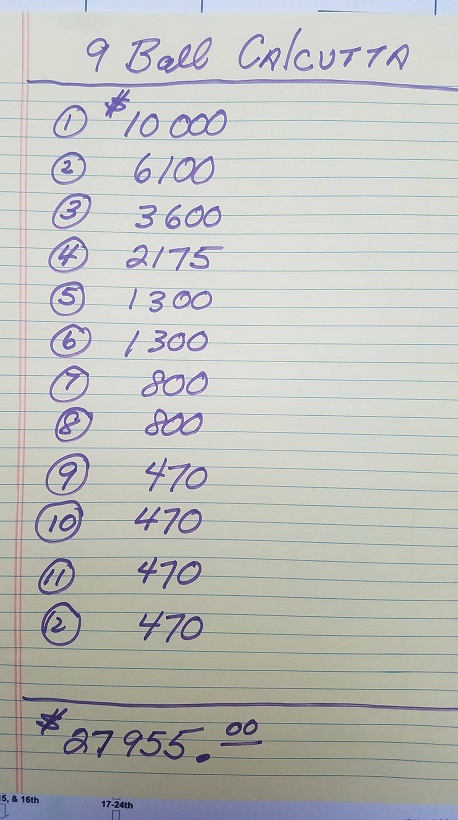 9 Ball CALCUTTA
1 $10 000
2 6100
3 3600
4 2175
5 1300
6 1300
7 800
8 800
9 470
10 470
11 470
12 470
$27955.00
5, & 16th 17-24th